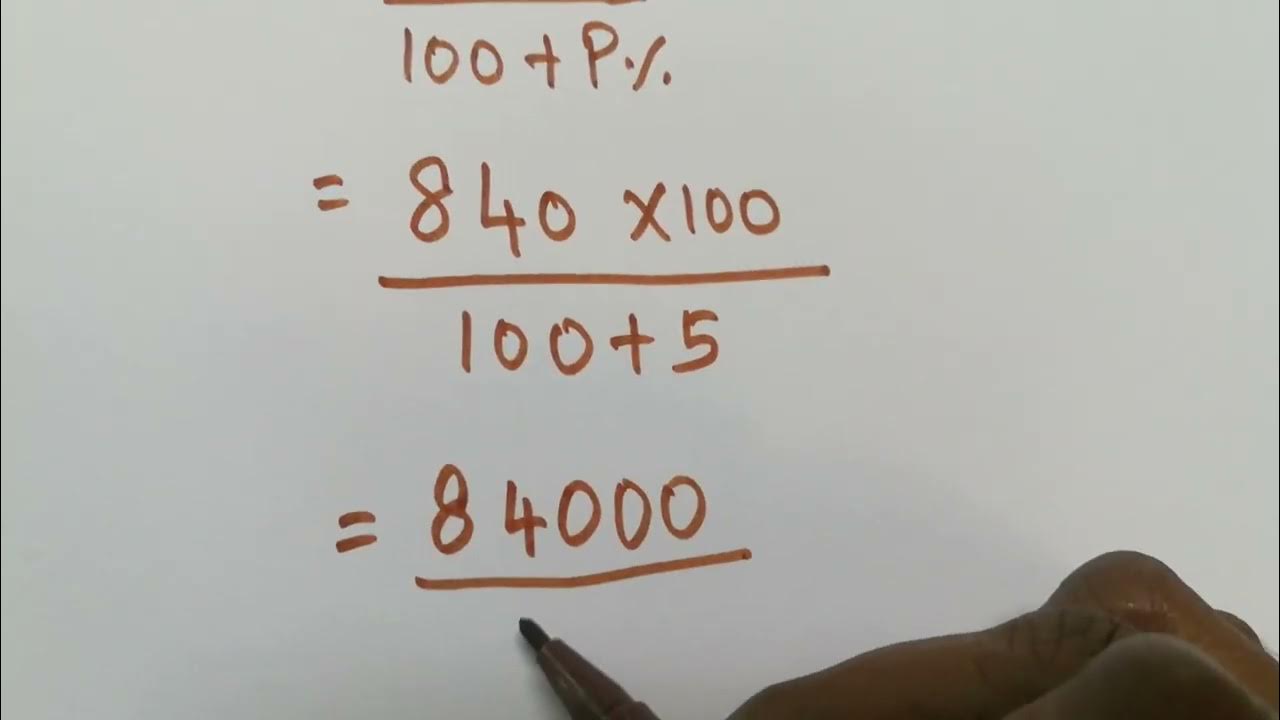 100 + P%
= 840 x 100
100 + 5
= 84000